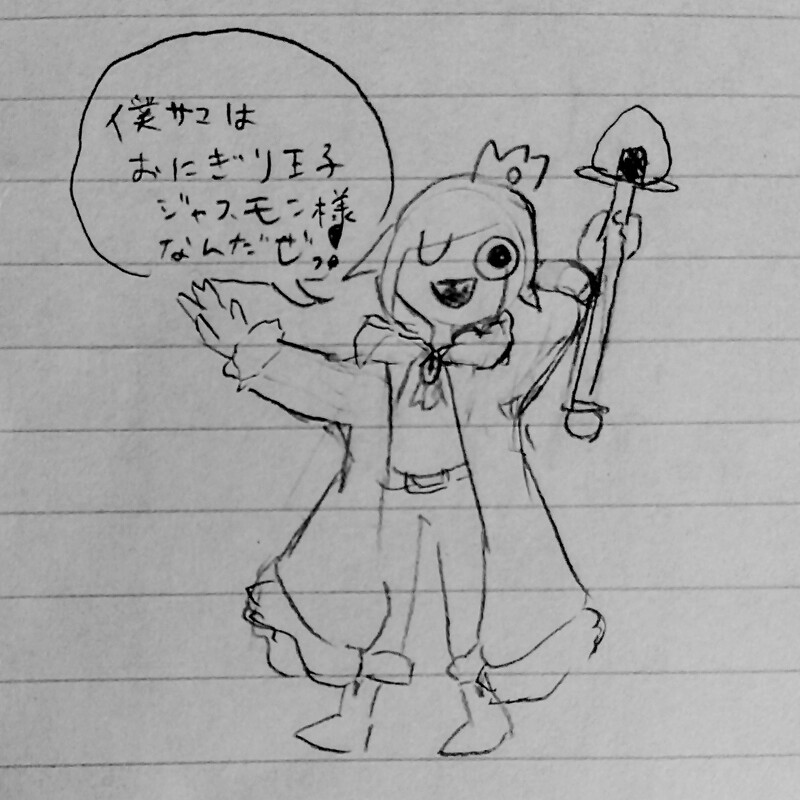 僕サマは
おにぎり王子
ジャスモン様
なんだぜっ!!